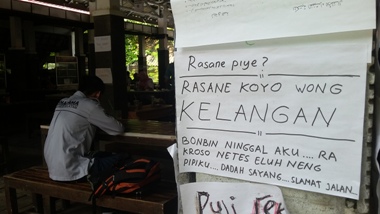 Rasane piye?
"
RASANE KOYO WONG
KELANGAN
"
BONBIN NINGGAL AKU.... RA
KROSO NETES ELUH NENG
PIPIKU.... DADAH SAYANG....SLAMAT JALAN...
Puji